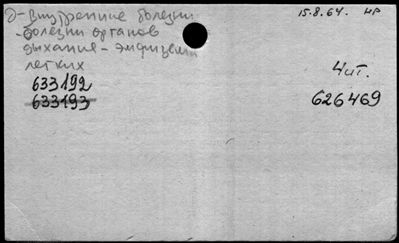 2-Внутренние болезни 15.8.64. НР
-болезни органов
дыхания - эмфизема
легких 4ит.
633192 626469
633193